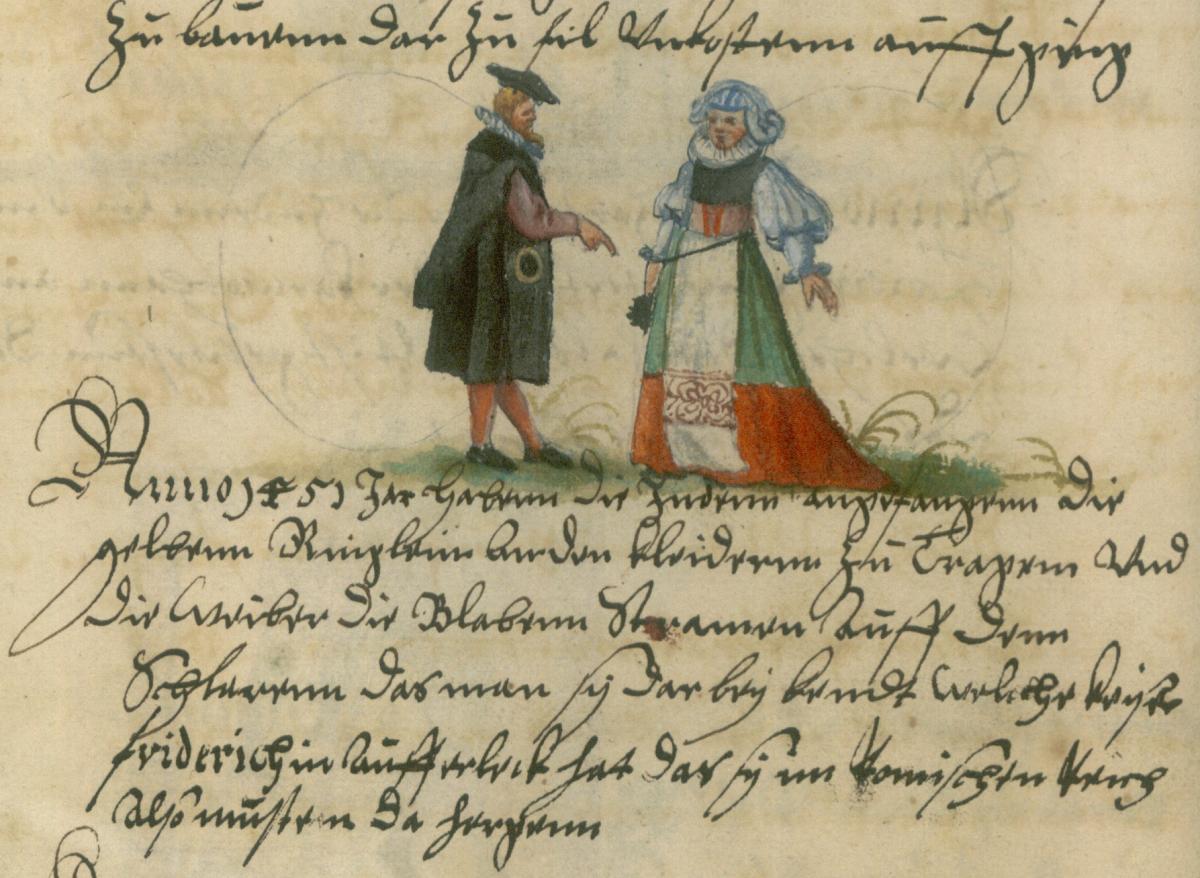 Zu bauenn dar Zu fil Vnkostenn auff ging
Anno 1451 Jar habenn die Judenn angefangenn die
gelbenn Ringlein an den kleidernn Zu Tragenn Vnd
die Weiber die Blabenn Stramen Auff denn
Schlerenn das man sy dar bey kendt welche keyser
friderich in Aufferleckt hat das sy im Romischen Reich
Also mustenn da hergenn